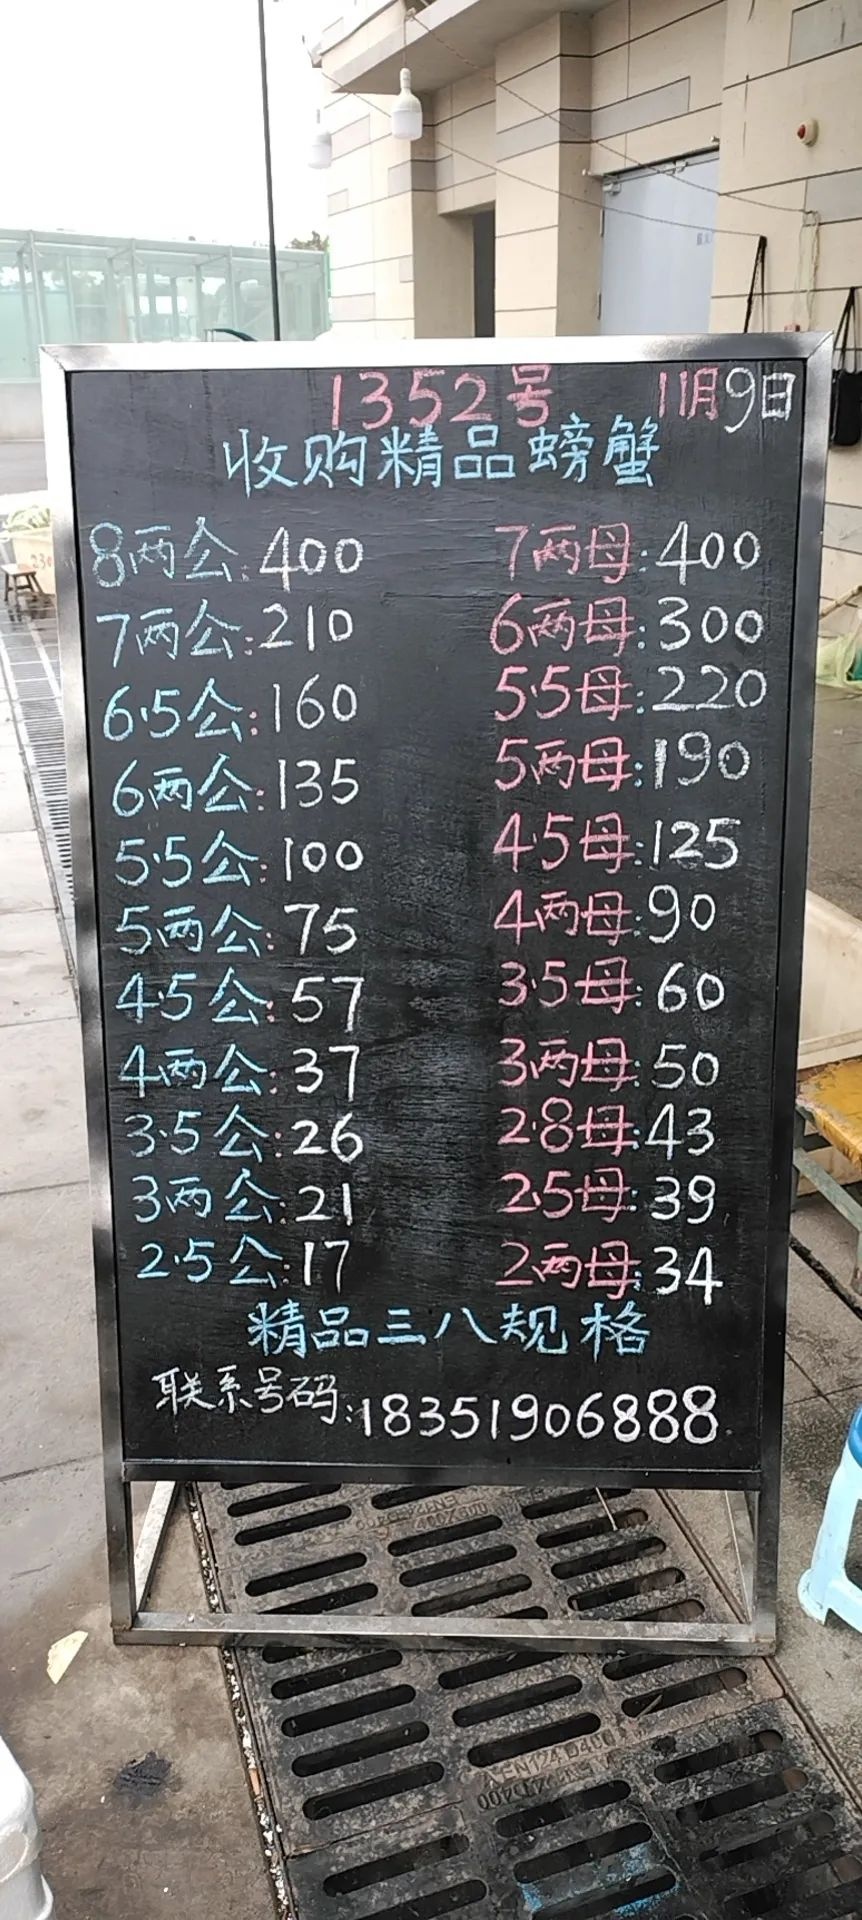 1352号 11月9日
收购精品螃蟹
8两公:400 7两母:400
7两公:210 6两母:300
6.5公:160 5.5母:220
6两公:135 5两母:190
5.5公:100 4.5母:125
5两公:75 4两母:90
4.5公:57 3.5母:60
4两公:37 3两母:50
3.5公:26 2.8母:43
3两公:21 2.5母:39
2.5公:17 2两母:34
精品三八规格
联系号码:18351906888
230